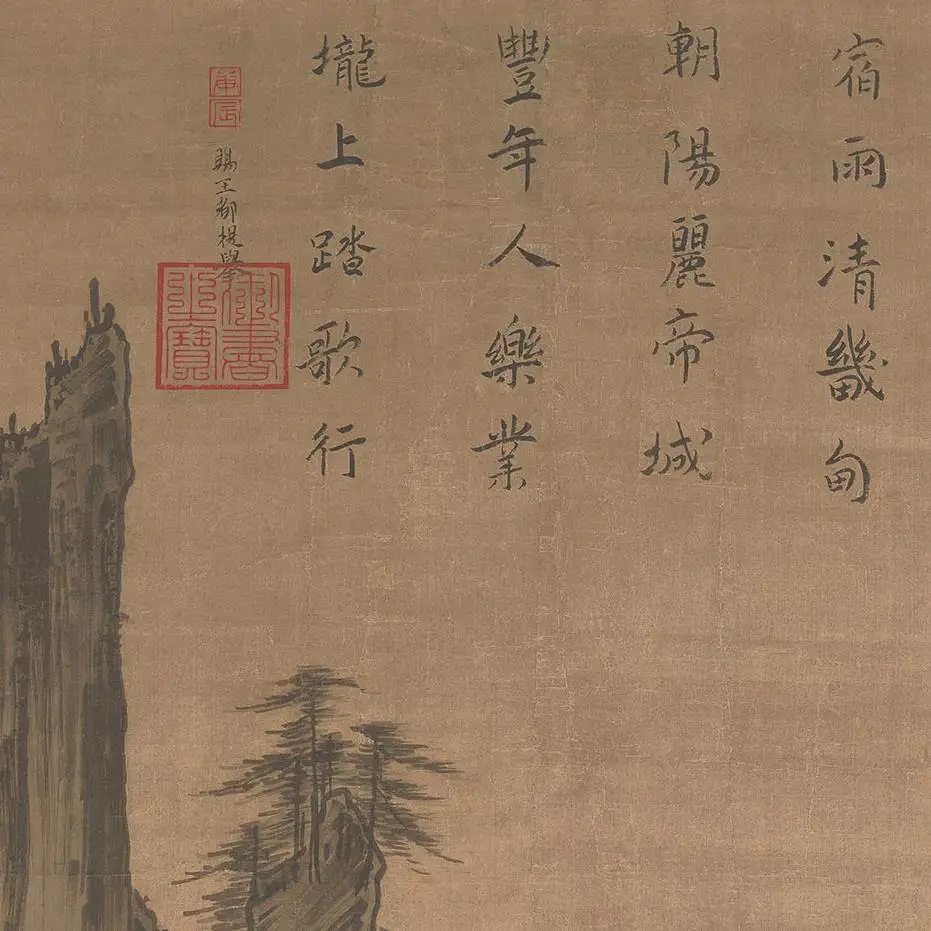 宿雨清畿甸
朝陽麗帝城
豐年人樂業
壠上踏歌行
庚辰
賜王都提舉
御書之寶